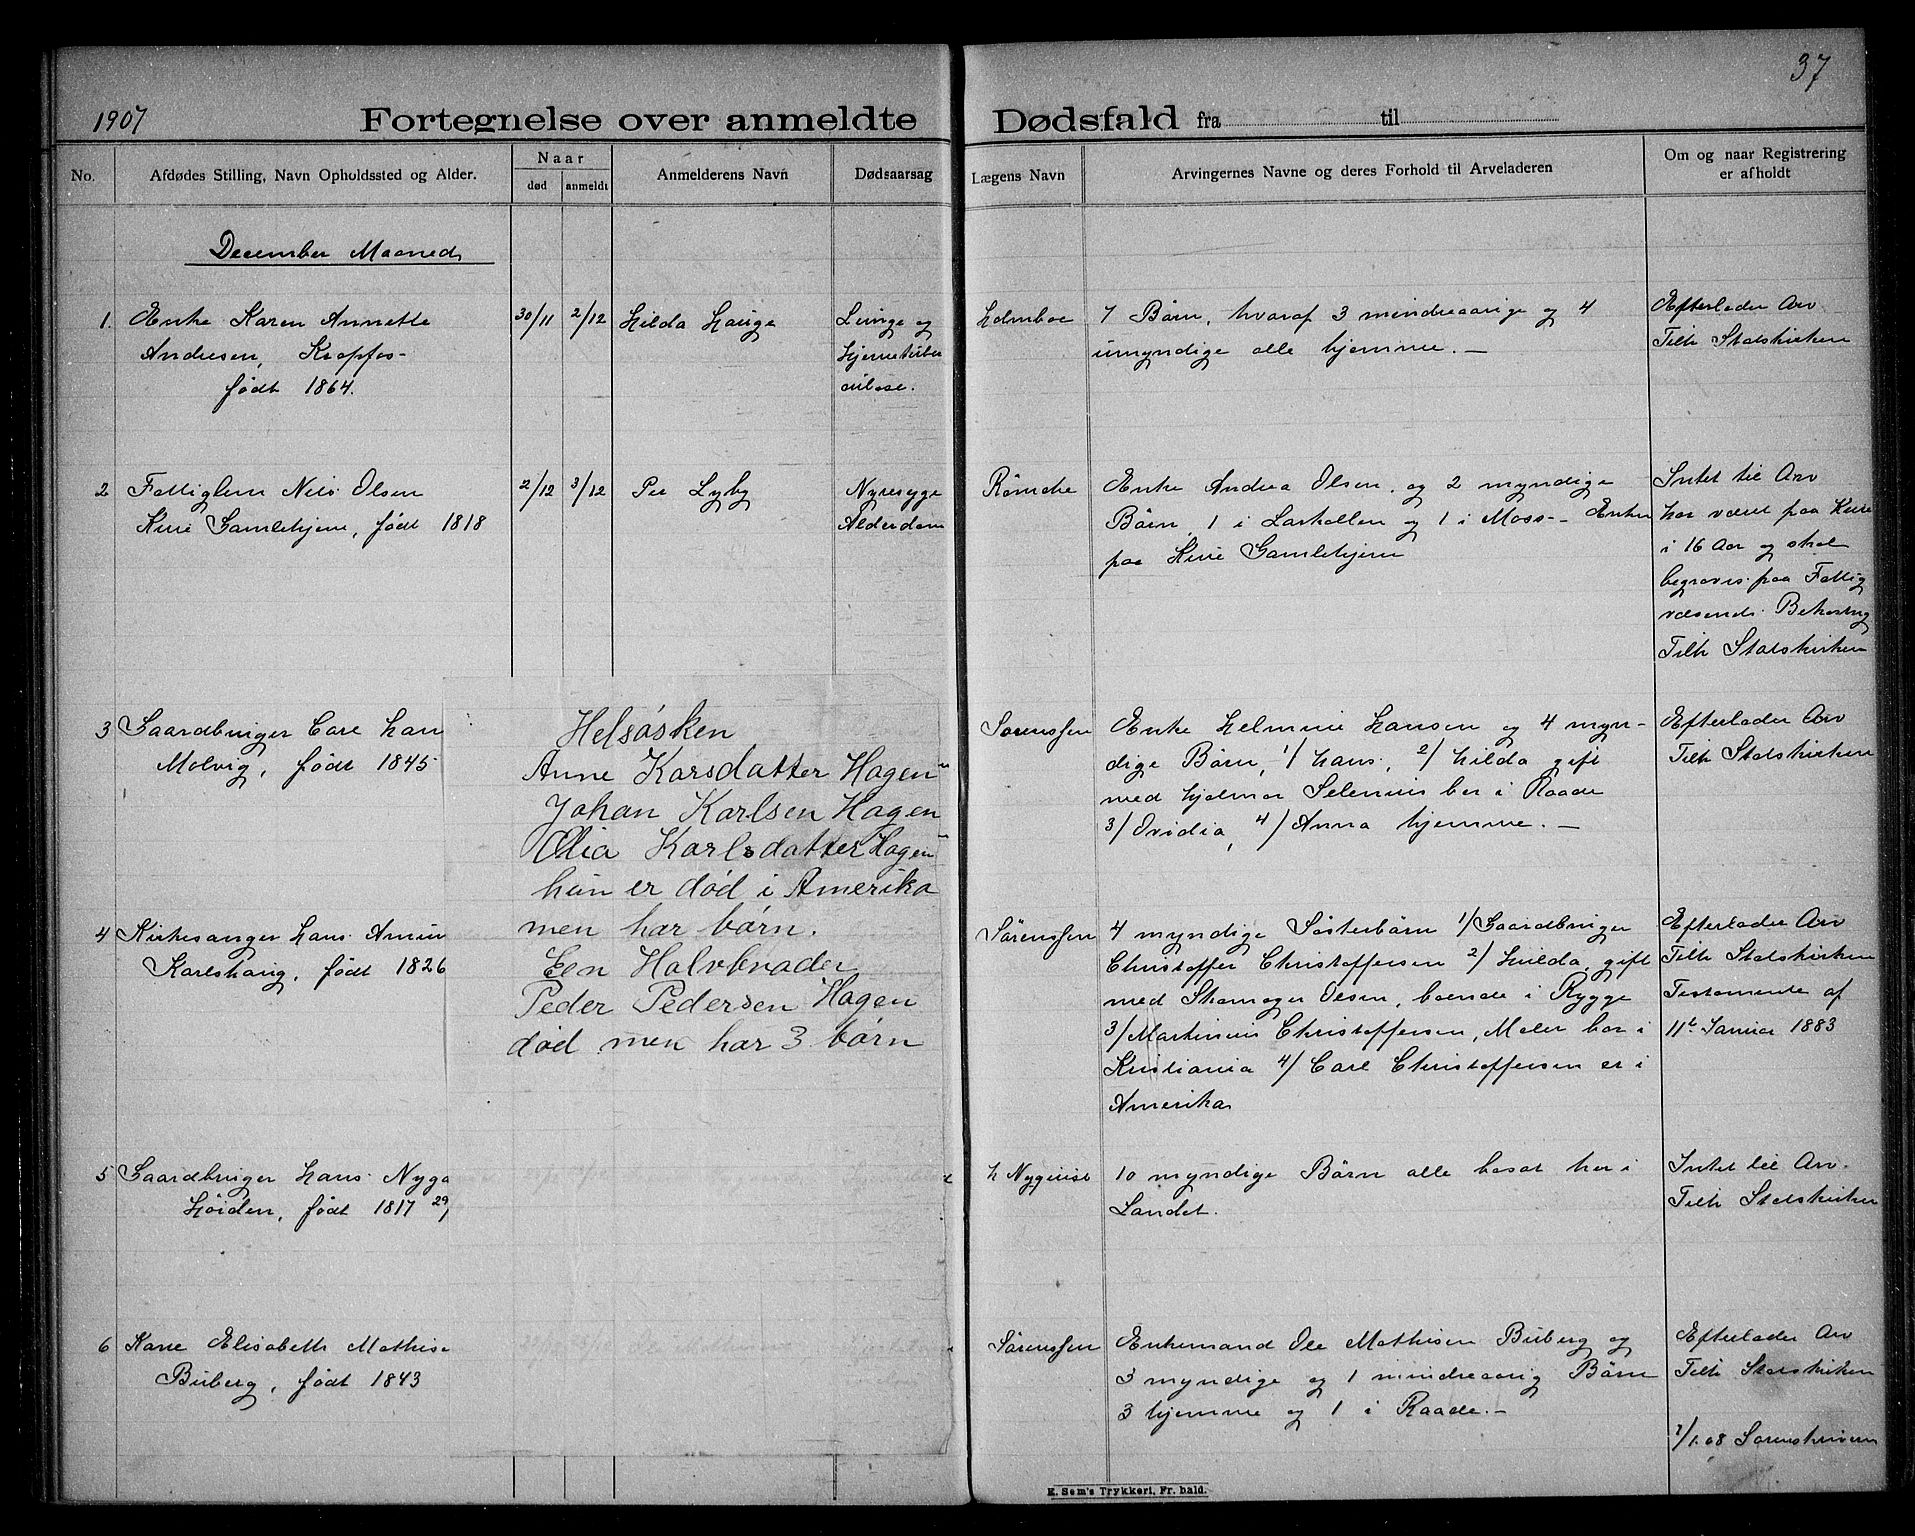 37
1907 Fortegnelse over anmeldte Dødsfald fra til
No.
Afdødes Stilling, Navn Opholdssted og Alder.
Naar
død anmeldt
Anmelderens Navn
Dødsaarsag
Lægens Navn
Arvingernes Navne og deres Forhold til Arveladeren
Om og naar Registrering
er afholdt
December Maaned
1. Enke Karen Annette
Andresen, Kropfos-
født 1864.
30/11 2/12 Hilda Hauge
Lunge og
Hjernetuber
culose.
Holmboe
7 Børn, hvoraf 3 mindreaarige og 4
umyndige alle hjemme. —
Efterlader Arv
Tilh Statskirken
2 Fattiglem Nils Olsen
Kure Gamlehjem, født 1818
2/12 3/12 Per Lyby
Nyresyge
Alderdom
Rømcke
Enke Andrea Olsen, og 2 myndige
Børn, 1 i Larkollen og 1 i Moss - Enken
paa Kure Gamlehjem
Intet til Arv
har været paa Kure
i 16 Aar og skal
begraves paa Fattig
væsends Bekostng
Tilh Statskirken
3 Gaardbruger Carl Han
Molvig, født 1845
Sørenssen
Enke Helmine Hansen og 4 myn-
dige Børn, 1/ Hans, 2/ Hilda gift
med Hjalmar Selenius bor i Raade
3/ Ovidia, 4/ Anna hjemme. —
Efterlader Arv
Tilh Statskirken
Helsøsken
Anne Karsdatter Hagen
Johan Karlsen Hagen
Olia Karlsdatter Hagen
hun er død i Amerika
men har børn.
Een Halvbroder
Peder Pedersen Hagen
død men har 3 børn
4 Kirkesanger Hans Amun
Karlshaug, født 1826
Sørenssen
4 myndige Søsterbørn 1/ Gaardbruger
Christoffer Christoffersen 2/ Hilda, gift
med Skomager Olsen, boende i Rygge
3/ Martinius Christoffersen, Maler bor i
Kristiania 4/ Carl Christoffersen er i
Amerika
Efterlader Arv
Tilh Statskirken
Testamente af
11te Januar 1883
5 Gaardbruger Hans Nyga
Høiden, født 1817 29/
H Nyquist
10 myndige Børn alle bosat her i
Landet.
Intet til Arv.
Tilh Statskirken
6 Kone Elisabeth Mathise
Buberg, født 1843
Sørenssen
Enkemand Ole Mathisen Buberg og
3 myndige og 1 mindreaarig Børn
3 hjemme og 1 i Raade. —
Efterlader Arv
Tilh Statskirken
7/1.08 Sorenskriveren
E. Sem's Trykkeri, Fr.hald.